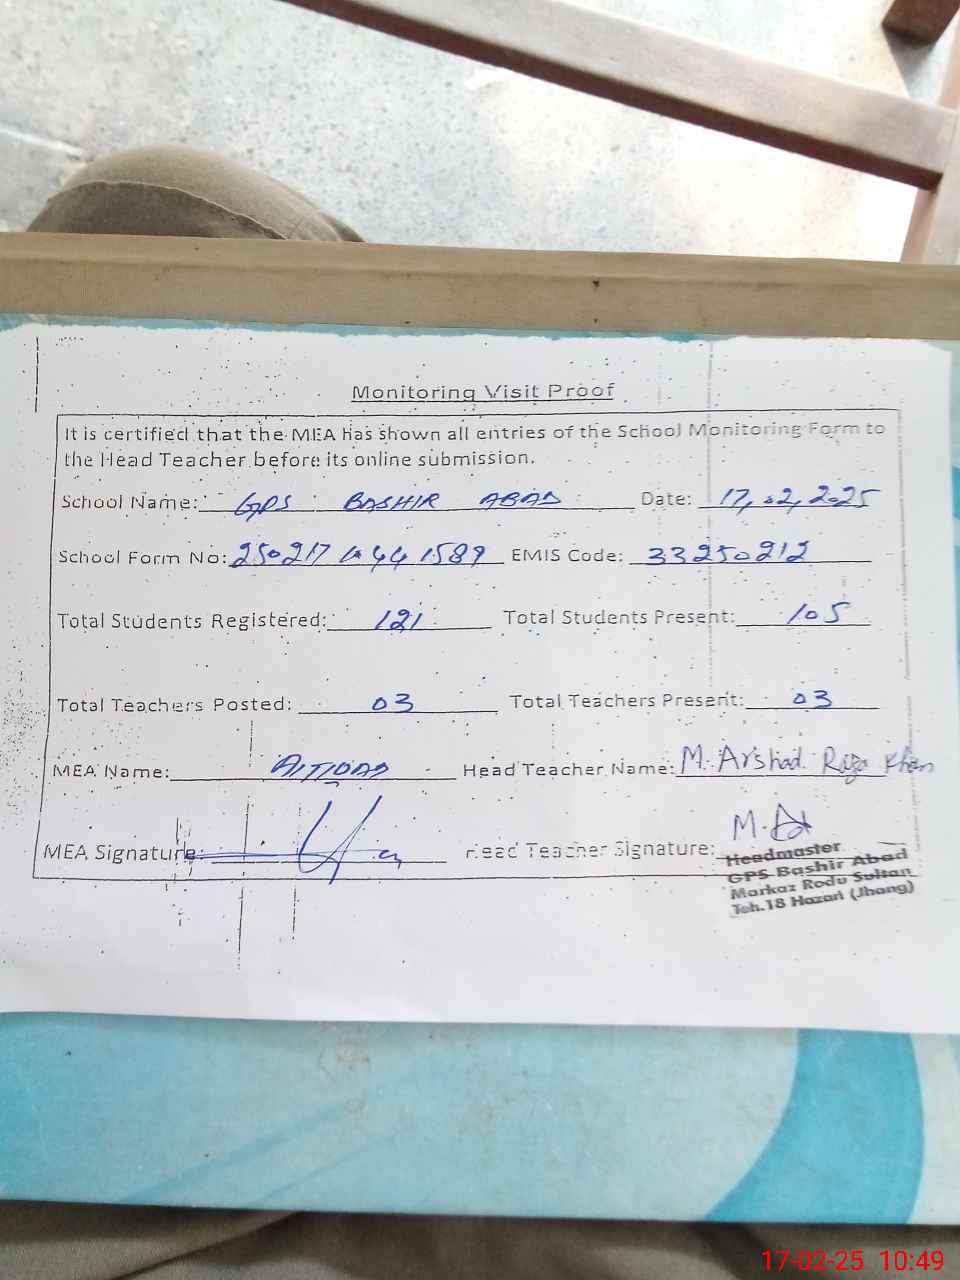 Monitoring Visit Proof
It is certified that the MEA has shown all entries of the School Monitoring Form to
the Head Teacher before its online submission.
School Name: GPS BASHIR ABAD Date: 17,02,2025
School Form No: 250217 10441589 EMIS Code: 33250212
Total Students Registered: 121 Total Students Present: 105
Total Teachers Posted: 03 Total Teachers Present: 03
MEA Name: Head Teacher Name: M. Arshad Raza Khan
MEA Signature: Head Teacher Signature:
Headmaster
GPS Bashir Abad
Markaz Rodu Sultan
Teh.18 Hazari (Jhang)
17-02-25 10:49